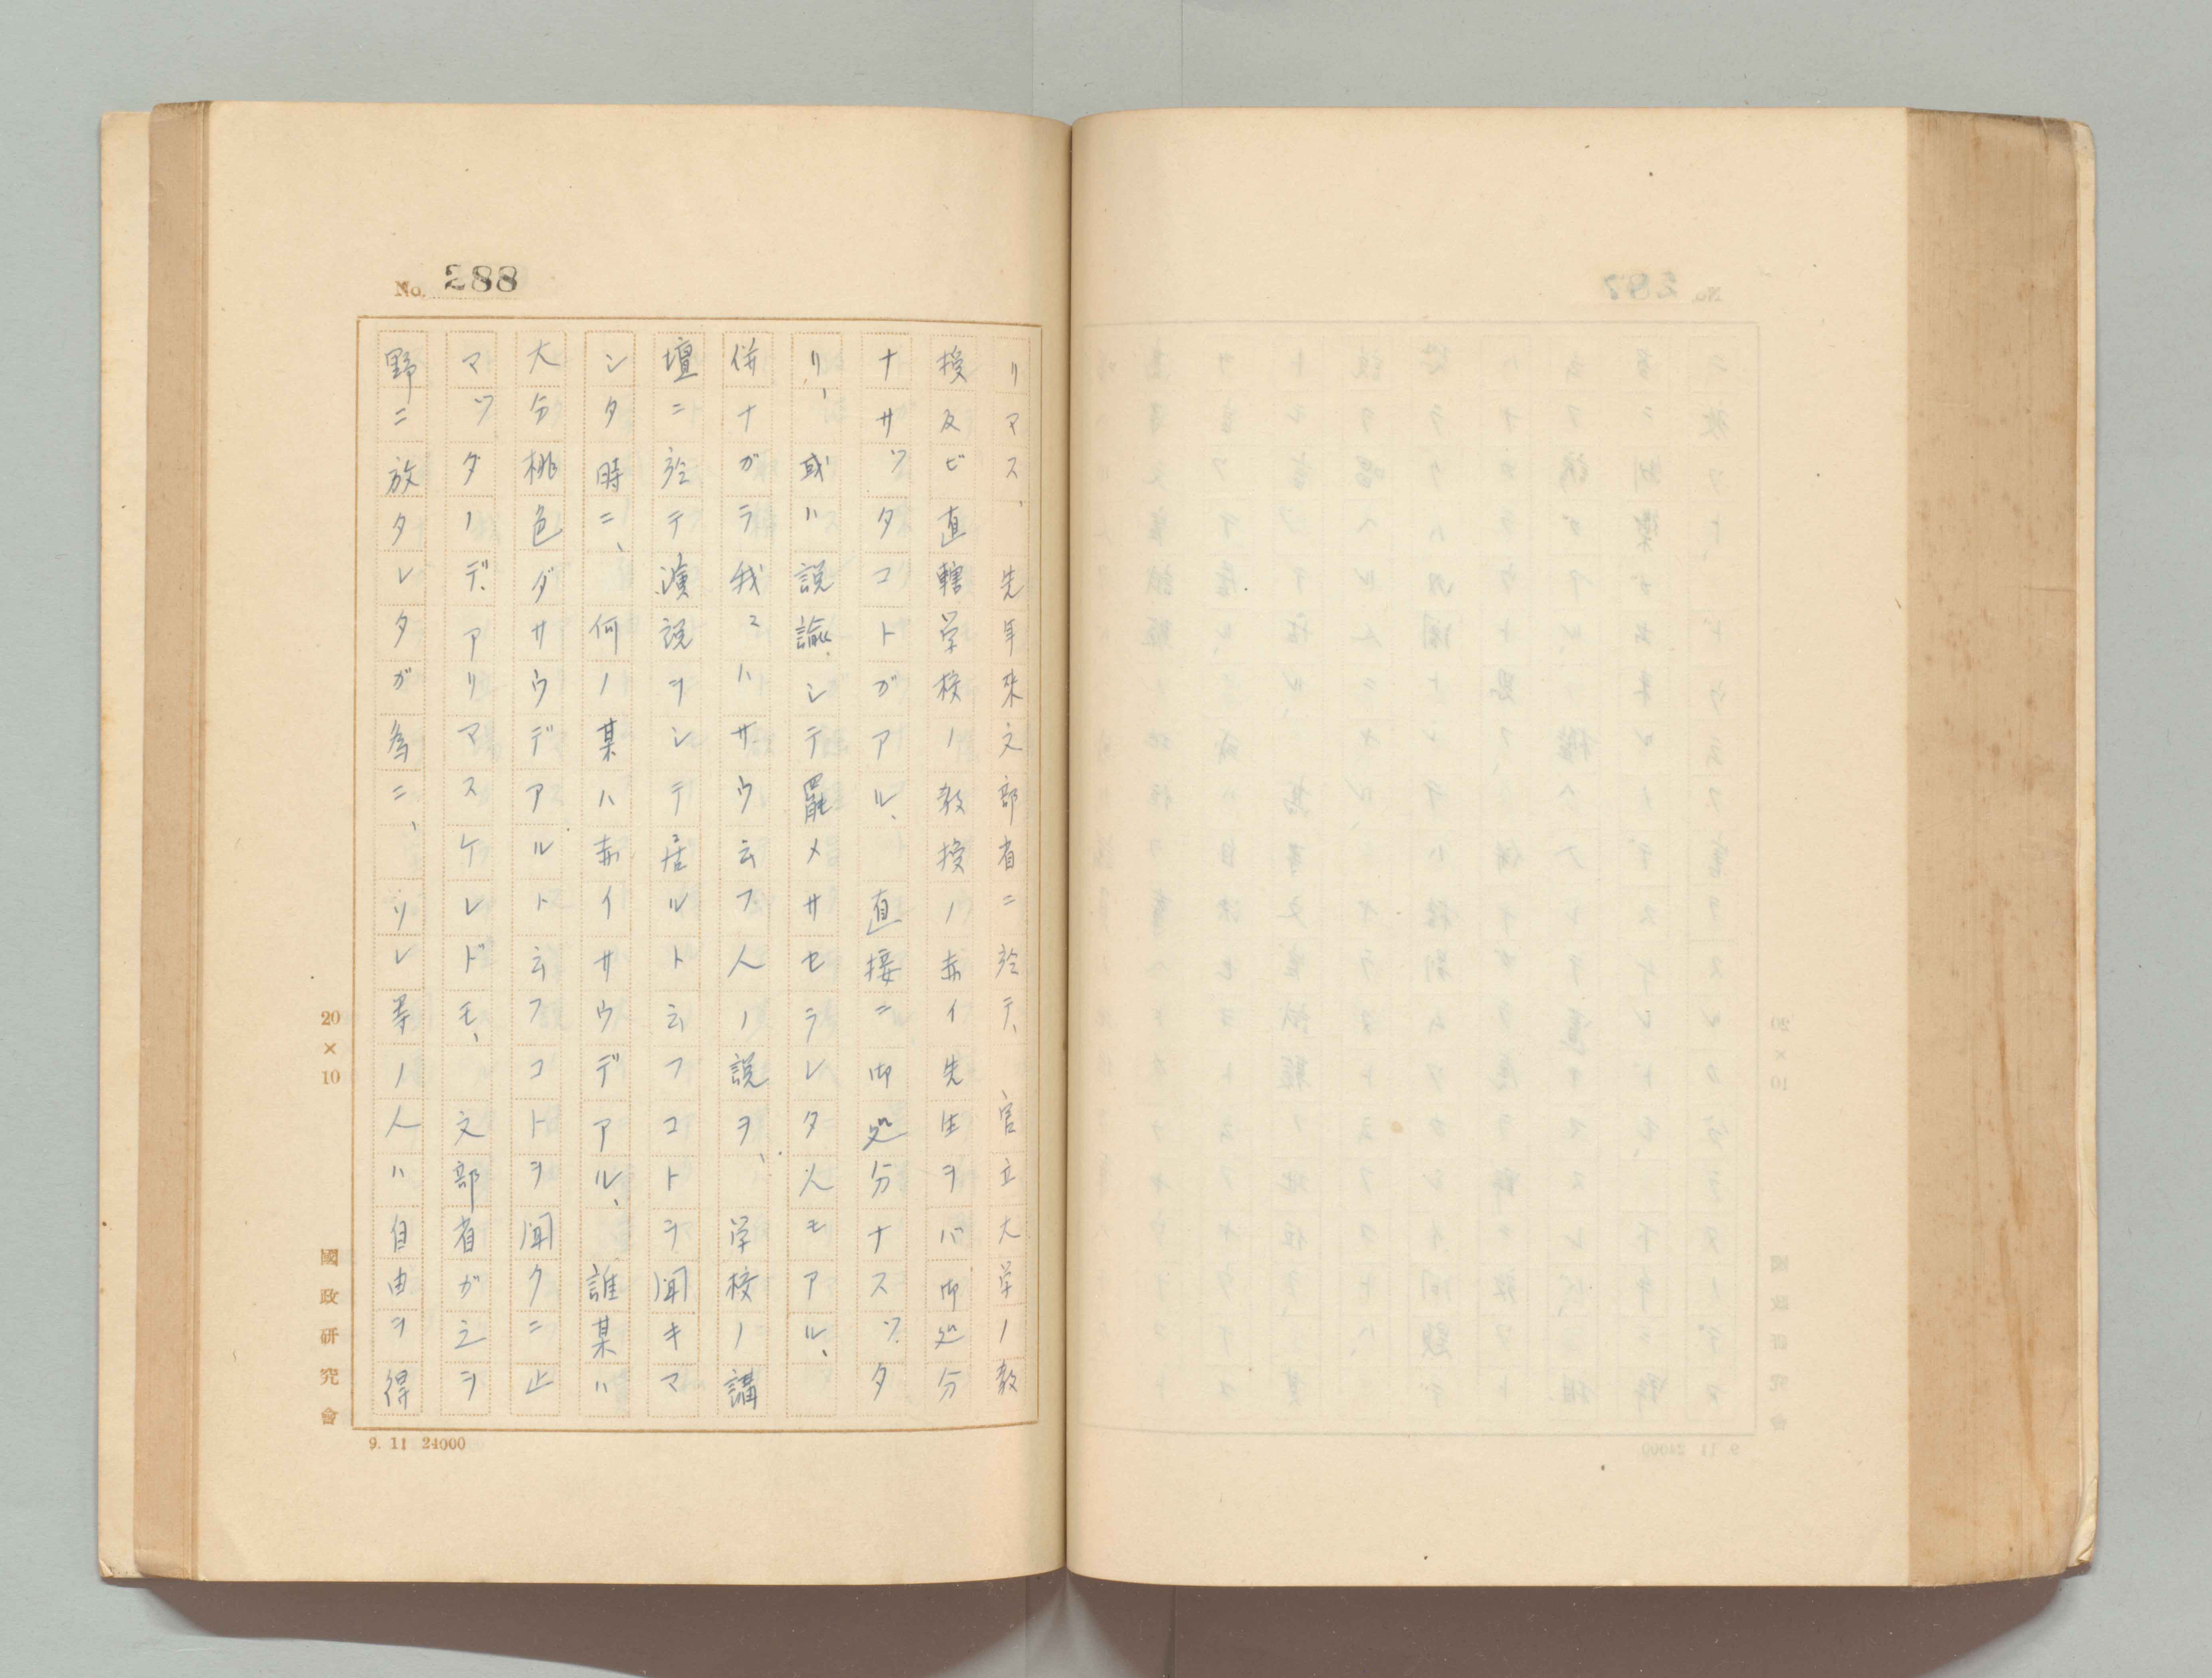 No. 288
リマス、先年来文部省ニ於テ、官立大学ノ教
授及ビ直轄学校ノ教授ノ赤イ先生ヲバ御処分
ナサツタコトガアル、直接ニ御処分ナスツタ
リ、或ハ説諭シテ罷メサセラレタ人モアル、
併ナガラ我々ハサウ云フ人ノ説ヲ、学校ノ講
壇ニ於テ演説ヲシテ居ルト云フコトヲ聞キマ
シタ時ニ、何ノ某ハ赤イサウデアル、誰某ハ
大分桃色ダサウデアルト云フコトヲ聞クニ止
マツダノデアリマスケレドモ、文部省ガ之ヲ
野ニ放タレタガ為ニ、ソレ等ノ人ハ自由ヲ得
20×10
國政研究會
9. 11 24000